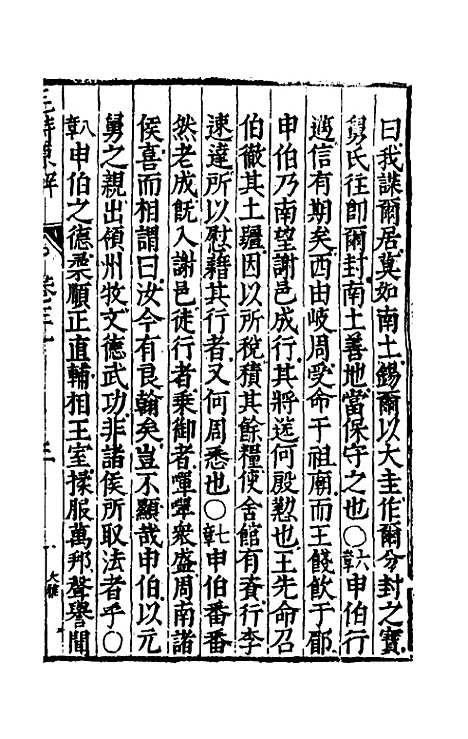 曰我謀爾居莫如南土錫爾以大圭作爾分封之寶
舅氏往卽爾封南土善地當保守之也〇六章申伯行
邁信有期矣西由岐周受命于祖廟而王餞飲于郿
申伯乃南望謝邑成行其將送何殷懃也王先命召
伯徹其土疆因以所稅積其餘糧使舍館有資行李
速達所以慰藉其行者又何周悉也〇七章申伯番番
然老成旣入謝邑徒行者乘御者嘽嘽衆盛周南諸
侯喜而相謂曰汝今有良翰矣豈不顯哉申伯以元
舅之親出領州牧文德武功非諸侯所取法者乎〇
八章申伯之德柔順正直輔相王室揉服萬邦聲譽聞
毛詩原解
大雅